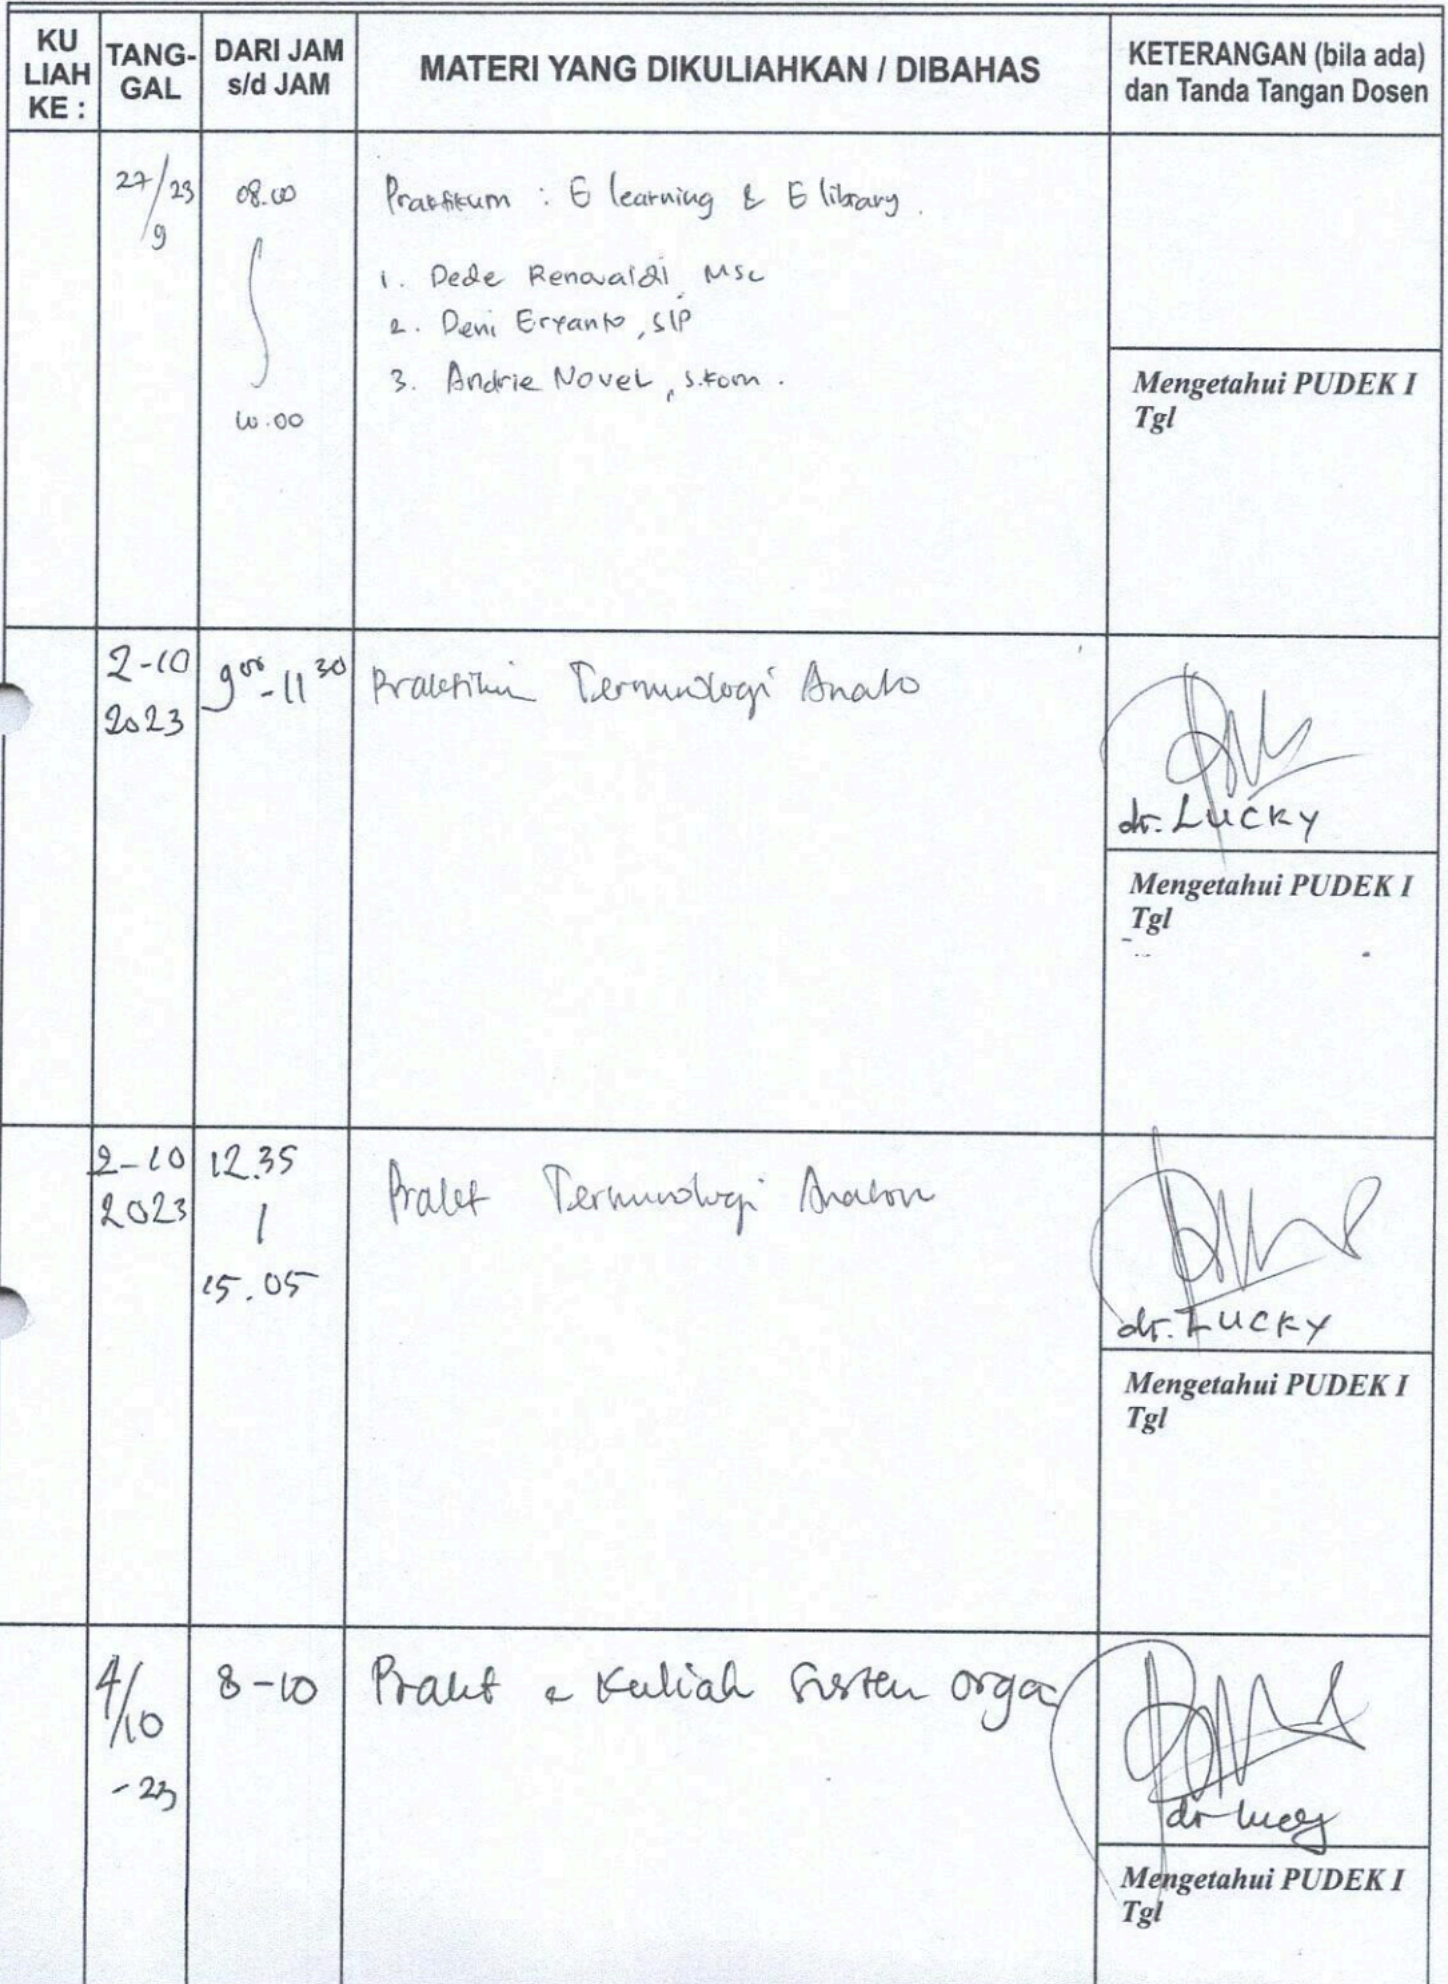 KU LIAH KE :
TANG-GAL
DARI JAM s/d JAM
MATERI YANG DIKULIAHKAN / DIBAHAS
KETERANGAN (bila ada) dan Tanda Tangan Dosen
27/9 23
08.00
10.00
Praktikum : E learning & E library.
1. Dede Renovaldi, MSc
2. Deni Eryanto, SIP
3. Andrie Novel, S.Kom.
Mengetahui PUDEK I
Tgl
2-10
2023
9⁰⁰-11³⁰
Praktikum Terminologi Anato
dr. LUCKY
Mengetahui PUDEK I
Tgl
2-10
2023
12.35
|
15.05
Prakt Terminologi Anatom
dr. LUCKY
Mengetahui PUDEK I
Tgl
4/10
-23
8-10
Prakt & Kuliah Sistem Orga
dr Lucky
Mengetahui PUDEK I
Tgl